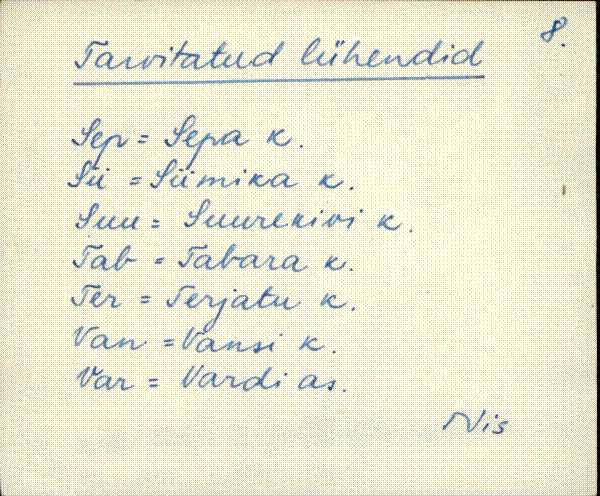 8.
Tarvitatud lühendid
Sep = Sepa k.
Sii = Siimika k.
Suu = Suurekivi k.
Tab = Tabara k.
Ter = Terjatu k.
Van = Vansi k.
Var = Vardi as.
Nis